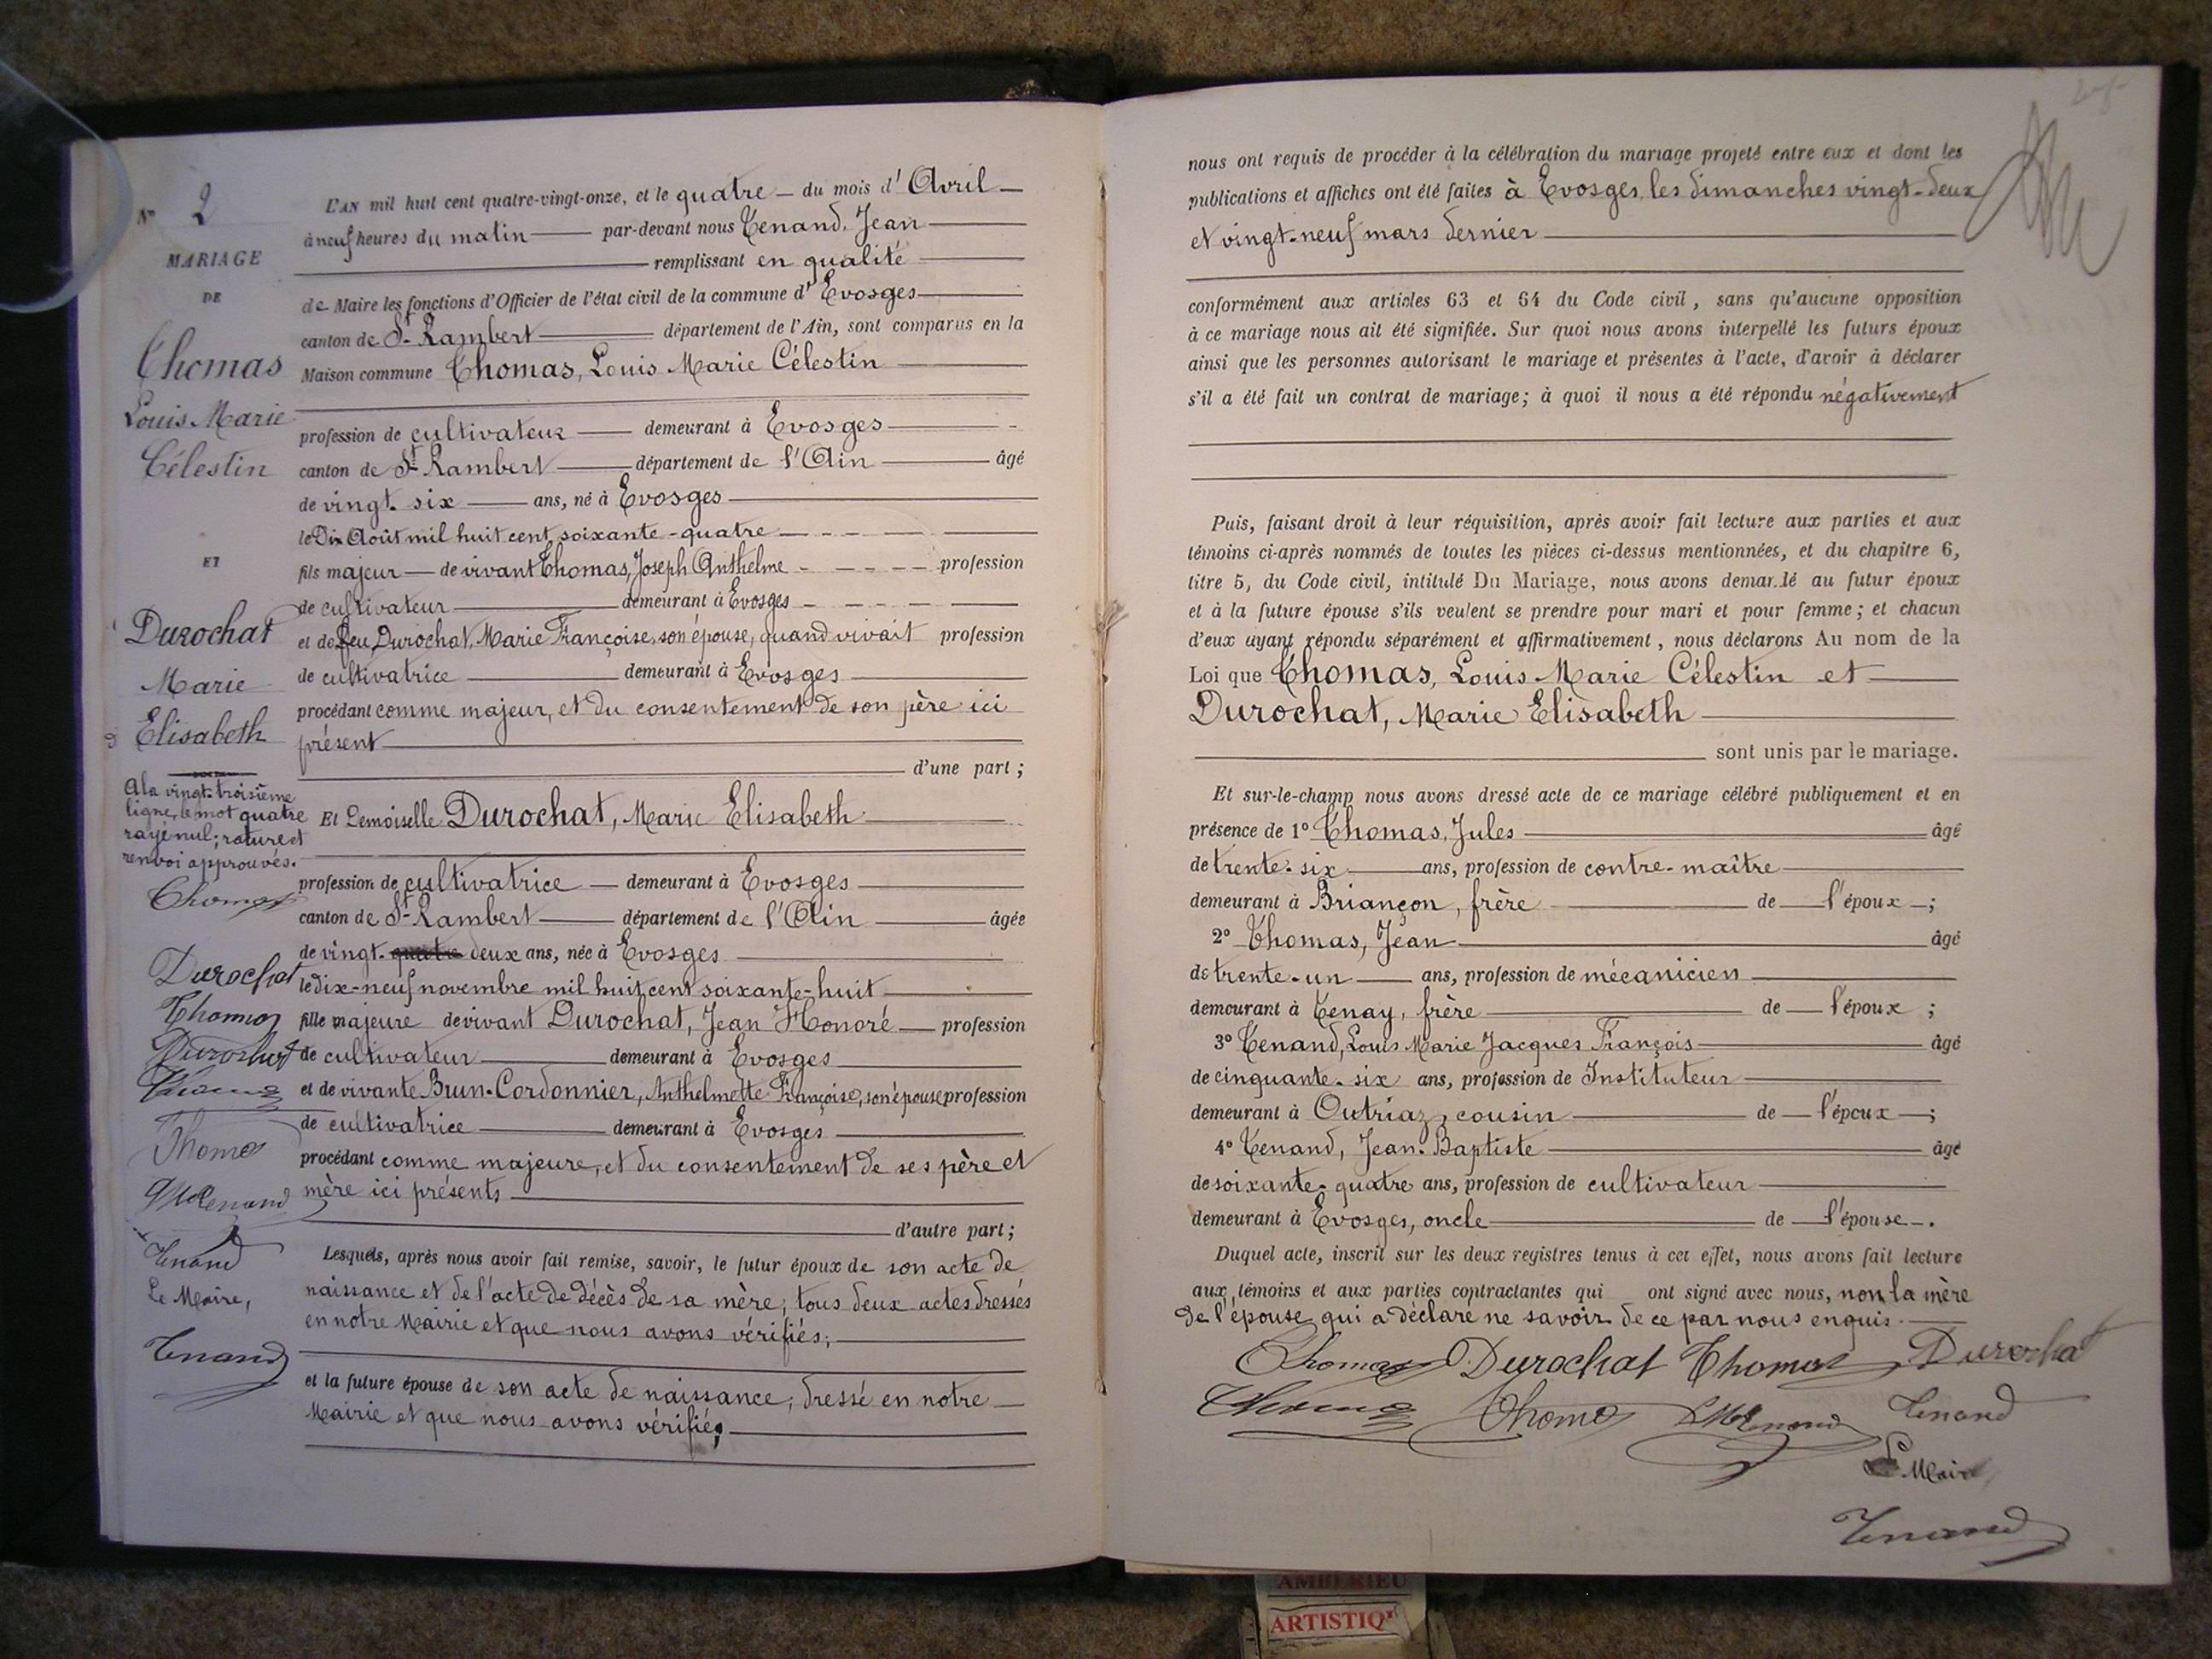 N° 2
MARIAGE
DE
Thomas
Louis Marie
Célestin
ET
Durochat
Marie
Elisabeth
A la vingt-troisième
ligne, le mot quatre
rayé nul; rature et
renvoi approuvés.
Thomas
Durochat
Thomas
Durochat
Thomas
Thomas
Tenand
Tenand
Le Maire,
Tenand
L'AN mil huit cent quatre-vingt-onze, et le quatre - du mois d'Avril
à neuf heures du matin par-devant nous Tenand, Jean
remplissant en qualité
de Maire les fonctions d'Officier de l'état civil de la commune d'Evosges
canton de St Rambert département de l'Ain, sont comparus en la
Maison commune Thomas, Louis Marie Célestin
profession de cultivateur demeurant à Evosges
canton de St Rambert département de l'Ain âgé
de vingt-six ans, né à Evosges
le Dix Août mil huit cent soixante-quatre
fils majeur de vivant Thomas, Joseph Anthelme profession
de cultivateur demeurant à Evosges
et de feu Durochat, Marie Françoise, son épouse, quand vivait profession
de cultivatrice demeurant à Evosges
procédant comme majeur, et du consentement de son père ici
présent
d'une part;
Et Demoiselle Durochat, Marie Elisabeth
profession de cultivatrice demeurant à Evosges
canton de St Rambert département de l'Ain âgée
de vingt-quatre deux ans, née à Evosges
le dix-neuf novembre mil huit cent soixante-huit
fille majeure de vivant Durochat, Jean Honoré profession
de cultivateur demeurant à Evosges
et de vivante Brun-Cordonnier, Anthelmette Françoise, son épouse profession
de cultivatrice demeurant à Evosges
procédant comme majeure, et du consentement de ses père et
mère ici présents
d'autre part;
Lesquels, après nous avoir fait remise, savoir, le futur époux de son acte de
naissance et de l'acte de décès de sa mère; tous deux actes dressés
en notre Mairie et que nous avons vérifiés;
et la future épouse de son acte de naissance, dressé en notre
Mairie et que nous avons vérifié;
nous ont requis de procéder à la célébration du mariage projeté entre eux et dont les
publications et affiches ont été faites à Evosges, les dimanches vingt-deux
et vingt-neuf mars dernier
conformément aux articles 63 et 64 du Code civil, sans qu'aucune opposition
à ce mariage nous ait été signifiée. Sur quoi nous avons interpellé les futurs époux
ainsi que les personnes autorisant le mariage et présentes à l'acte, d'avoir à déclarer
s'il a été fait un contrat de mariage; à quoi il nous a été répondu négativement
Puis, faisant droit à leur réquisition, après avoir fait lecture aux parties et aux
témoins ci-après nommés de toutes les pièces ci-dessus mentionnées, et du chapitre 6,
titre 5, du Code civil, intitulé Du Mariage, nous avons demandé au futur époux
et à la future épouse s'ils veulent se prendre pour mari et pour femme; et chacun
d'eux ayant répondu séparément et affirmativement, nous déclarons Au nom de la
Loi que Thomas, Louis Marie Célestin et
Durochat, Marie Elisabeth
sont unis par le mariage.
Et sur-le-champ nous avons dressé acte de ce mariage célébré publiquement et en
présence de 1° Thomas, Jules âgé
de trente-six ans, profession de contre-maître
demeurant à Briançon, frère de l'époux;
2° Thomas, Jean âgé
de trente-un ans, profession de mécanicien
demeurant à Tenay, frère de l'époux;
3° Tenand, Louis Marie Jacques François âgé
de cinquante-six ans, profession de Instituteur
demeurant à Outriaz, cousin de l'époux;
4° Tenand, Jean-Baptiste âgé
de soixante-quatre ans, profession de cultivateur
demeurant à Evosges, oncle de l'épouse.
Duquel acte, inscrit sur les deux registres tenus à cet effet, nous avons fait lecture
aux témoins et aux parties contractantes qui ont signé avec nous, non la mère
de l'épouse qui a déclaré ne savoir de ce par nous enquis.
Thomas Durochat Thomas Durochat
Thomas Thomas Tenand Tenand
Le Maire,
Tenand
AMBERIEU
ARTISTIQ